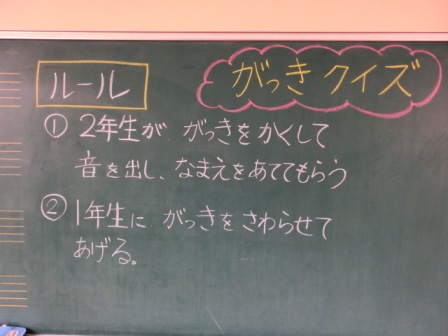 ルール
がっき クイズ
① 2年生が がっきを かくして
音を出し、なまえをあててもらう
② 1年生に がっきを さわらせて
あげる。